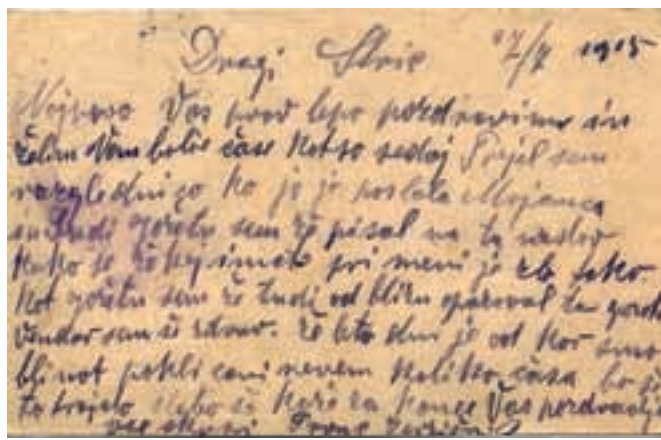 Dragi Stric 17/7 1915
Najprvo Vas prov lepo pozdravimo in
želim Vam bolše čase kot so sedaj Prejel sem
razglednizo ko je je poslala Mojanca
in tudi sem že pisal na ta naslov
kako se že kej imate pri meni je zb tako
kot sem že tudi od blizu
Vendar sem še zdrav. že leto dni je od kar smo
bli not poklicani nevem koliko časa bo še
to trajelo slabo se kaže za konec Vas pozdravlja
vse skupi